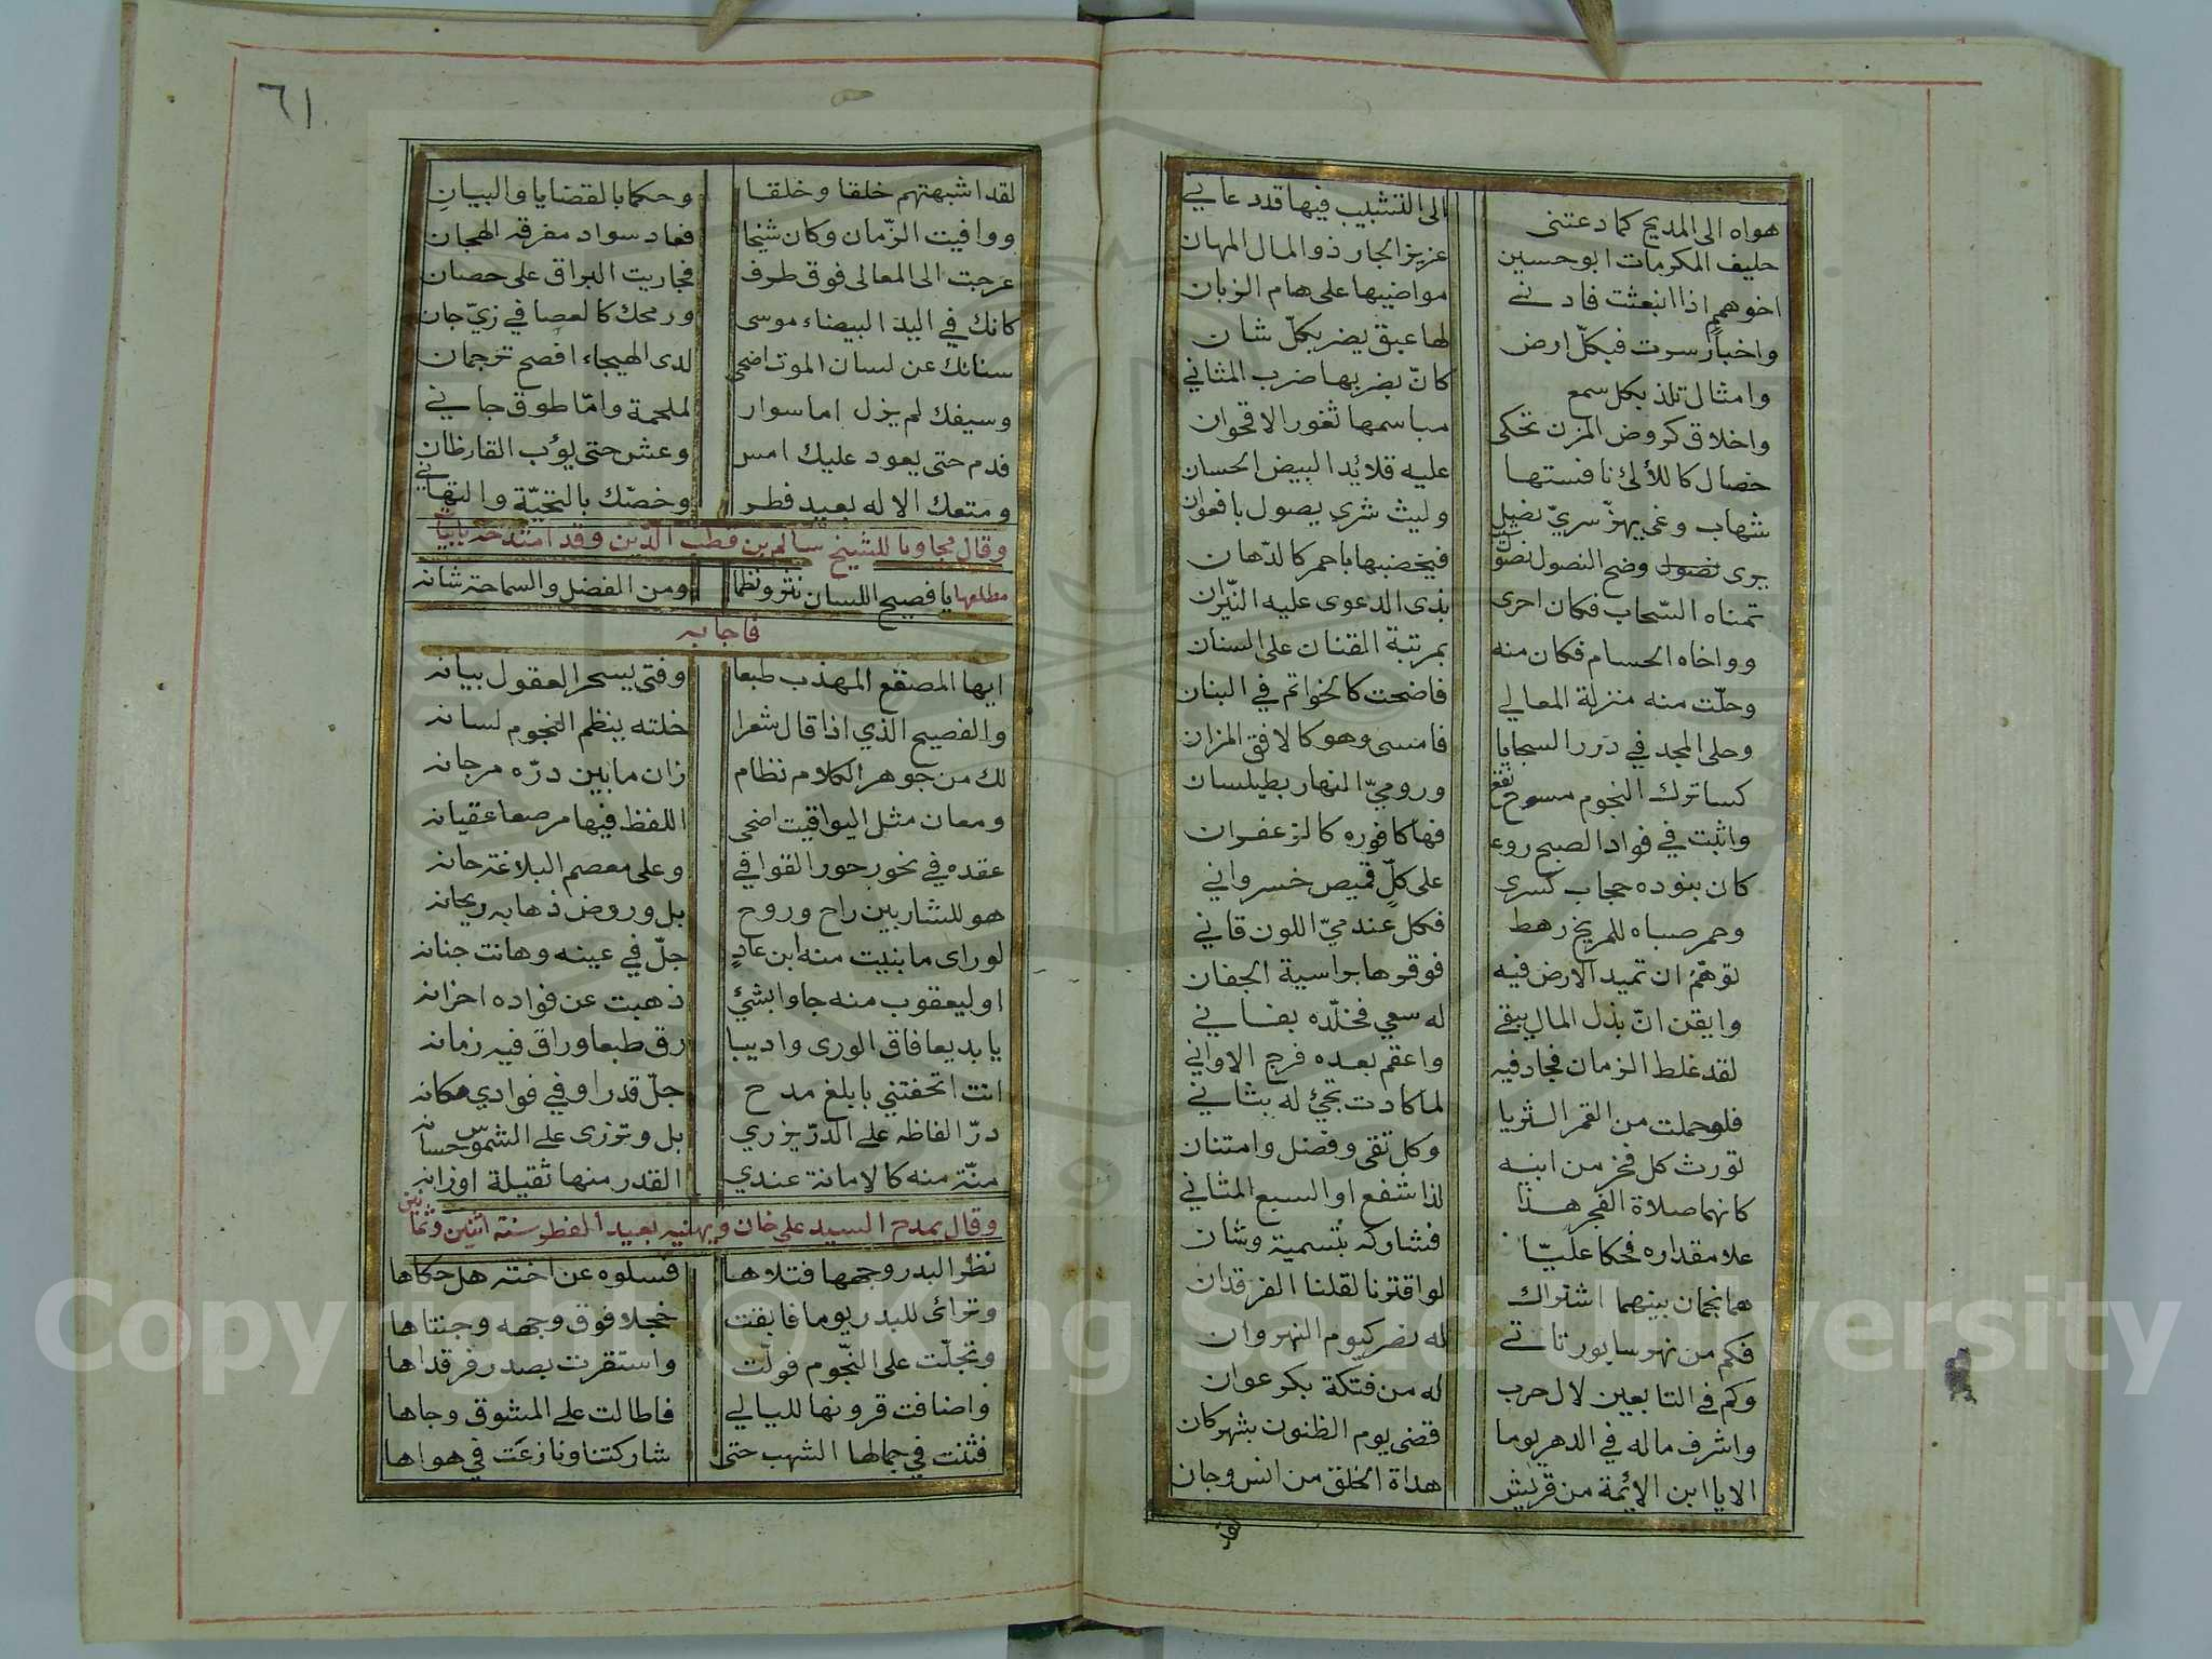 هواه الى المديح كما دعتنى الى التشبيب فيها قد دعاني
حليف المكرمات ابو حسين عزيز الجار ذو المال المهان
اخو همم اذا انبعثت فادنى مواضيها على هام الزبان
واخبار سرت فبكلّ ارض لها عبق يضر بكلّ شان
وامثال تلذ بكل سمع كانّ بضربها ضرب المثاني
واخلاق كروض المزن تحكى مباسمها ثغور الاقحوان
خصال كاللألئ نافستها عليه قلائد البيض الحسان
شهاب وغى يهزّ سريّ نصل وليث شرى يصول بافعوان
يرى نصول وضح النصول فيخضبها باحمر كالدّهان
تمناه السّحاب فكان احرى بذى الدعوى عليه النيّران
وواخاه الحسام فكان منه بمرتبة القنان على السنان
وحلّت منه منزلة المعالي فاضحت كالخواتم في البنان
وحلى المجد في درر السجايا فامسى وهو كالافق المزان
كسا ترك النجوم مسوح نقع وروميّ النهار بطيلسان
واثبت في فواد الصبح روع فها كافوره كالزعفران
كان بنوده حجاب كسرى على كلّ قميص خسرواني
وحمر صباه للمريخ رهط فكل عندميّ اللون قاني
توهّم ان تميد الارض فيه فوقوها براسية الجفان
وايقن انّ بذل المال يبقى له سعي فخلّده بفاني
لقد غلط الزمان فجاد فيه واعقم بعده فرج الاواني
فلو حملت من القمر الثريا لما كادت تجئ له بثاني
تورث كل فخر من ابيه وكل تقى وفضل وامتنان
كانهما صلاة الفجر هذا لذا شفع او السبع المثاني
علا مقداره فحكا عليّا فشاركه بتسمية وشان
هما نجمان بينهما اشتراك لو اقترنا لقلنا الفرقدان
فكم من نهر سابور تاتى له نصر كيوم النهروان
وكم في التابعين لال حرب له من فتكة بكر عوان
واشرف ماله في الدهر يوما قضى يوم الظنون بشهركان
الا يا ابن الائمة من قريش هداة الخلق من انس وجان
لقد
٦١
لقد اشبهتهم خلقا وخلقا وحكما بالقضايا والبيان
ووافيت الزّمان وكان شيخا فعاد سواد مفرقه الهجان
عرجت الى المعالى فوق طرف فجاريت البراق على حصان
كانك في اليد البيضاء موسى ورمحك كالعصا في زيّ جان
سنانك عن لسان الموت اضحى لدى الهيجاء افصح ترجمان
وسيفك لم يزل اما سوار لملحمة وامّا طوق جاني
فدم حتى يعود عليك امس وعش حتى يؤب القارظان
ومتعك الاله بعيد فطر وخصّك بالتحيّة والتهاني
وقال مجاوبا للشيخ سالم بن قطب الدّين وقد امتدحه بابيات
مطلعها يا فصيح اللسان نثر ونظما ومن الفضل والسماحة شانه
فاجابه
ايها المصقع المهذب طبعا وفتى يسحر العقول بيانه
والفصيح الذي اذا قال شعرا خلته ينظم النجوم لسانه
لك من جوهر الكلام نظام زان ما بين درّه مرجانه
ومعان مثل اليواقيت اضحى اللفظ فيها مرصعا عقيانه
عقده في نحور حور القوافي وعلى معصم البلاغة حانه
هو للشاربين راح وروح بل وروض ذهابه ريحانه
لو راى ما بنيت منه ابن عاد جلّ في عينه وهانت جنانه
او ليعقوب منه جاوا بشئ ذهبت عن فواده احزانه
يا بديعا فاق الورى واديبا رق طبعا وراق فيه زمانه
انت اتحفتني بابلغ مدح جلّ قدرا وفي فوادي مكانه
درّ الفاظه على الدرّ يزري بل وتزرى على الشموس حسانه
منّة منه كالامانة عندي القدر منها ثقيلة اوزانه
وقال يمدح السيد علي خان ويهنيه بعيد الفطر سنة اثنين وثمانين
نظر البدر وجهها فتلاها فسلوه عن اخته هل حكاها
وترائ للبدر يوما فابقت خجلا فوق وجهه وجنتاها
وتجلّت على النّجوم فولّت واستقرت بصدر فرقداها
واضافت قرونها لليالي فاطالت على المشوق وجاها
فثنت في جمالها الشهب حتى شاركتنا ونازعت في هواها
Copyright © King Saud University